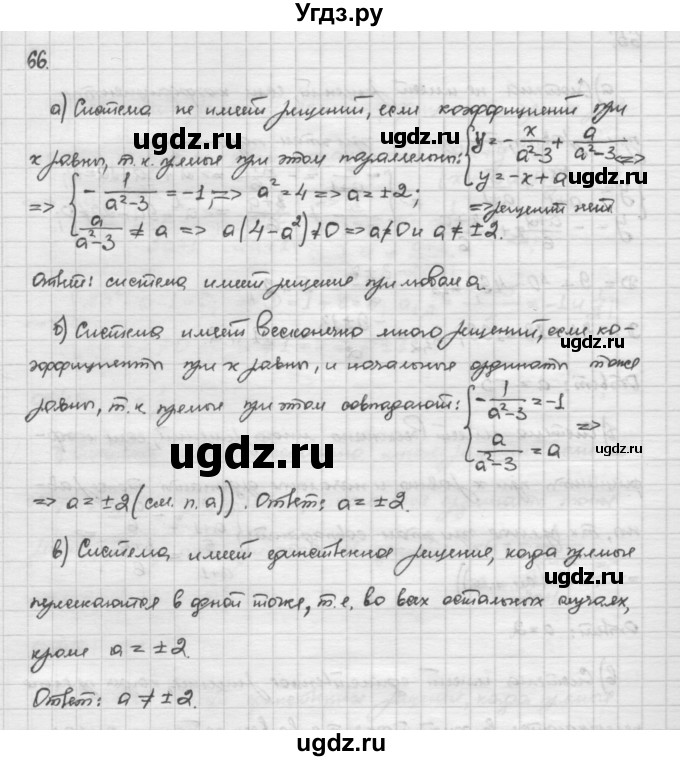 Угдз.ру
66.
а) Система не имеет решений, если коэффициенты при
x равны, т.к. прямые при этом параллельны: { y = - x/(a²-3) + a/(a²-3) <=>
y = -x + a
=> { - 1/(a²-3) = -1; => a² = 4 => a = ±2; => решений нет
a/(a²-3) ≠ a => a(4-a²) ≠ 0 => a ≠ 0 и a ≠ ±2.
Ответ: система имеет решение при любом a.
б) Система имеет бесконечно много решений, если ко-
эффициенты при x равны, и начальные ординаты тоже
равны, т.к. прямые при этом совпадают: { - 1/(a²-3) = -1
a/(a²-3) = a =>
=> a = ±2 (см. п. а)). Ответ: a = ±2.
в) Система имеет единственное решение, когда прямые
пересекаются в одной точке, т.е. во всех остальных случаях,
кроме a = ±2
Ответ: a ≠ ±2.
ugdz.ru
ugdz.ru
ugdz.ru
ugdz.ru
ugdz.ru
ugdz.ru
ugdz.ru
ugdz.ru
ugdz.ru
ugdz.ru
ugdz.ru